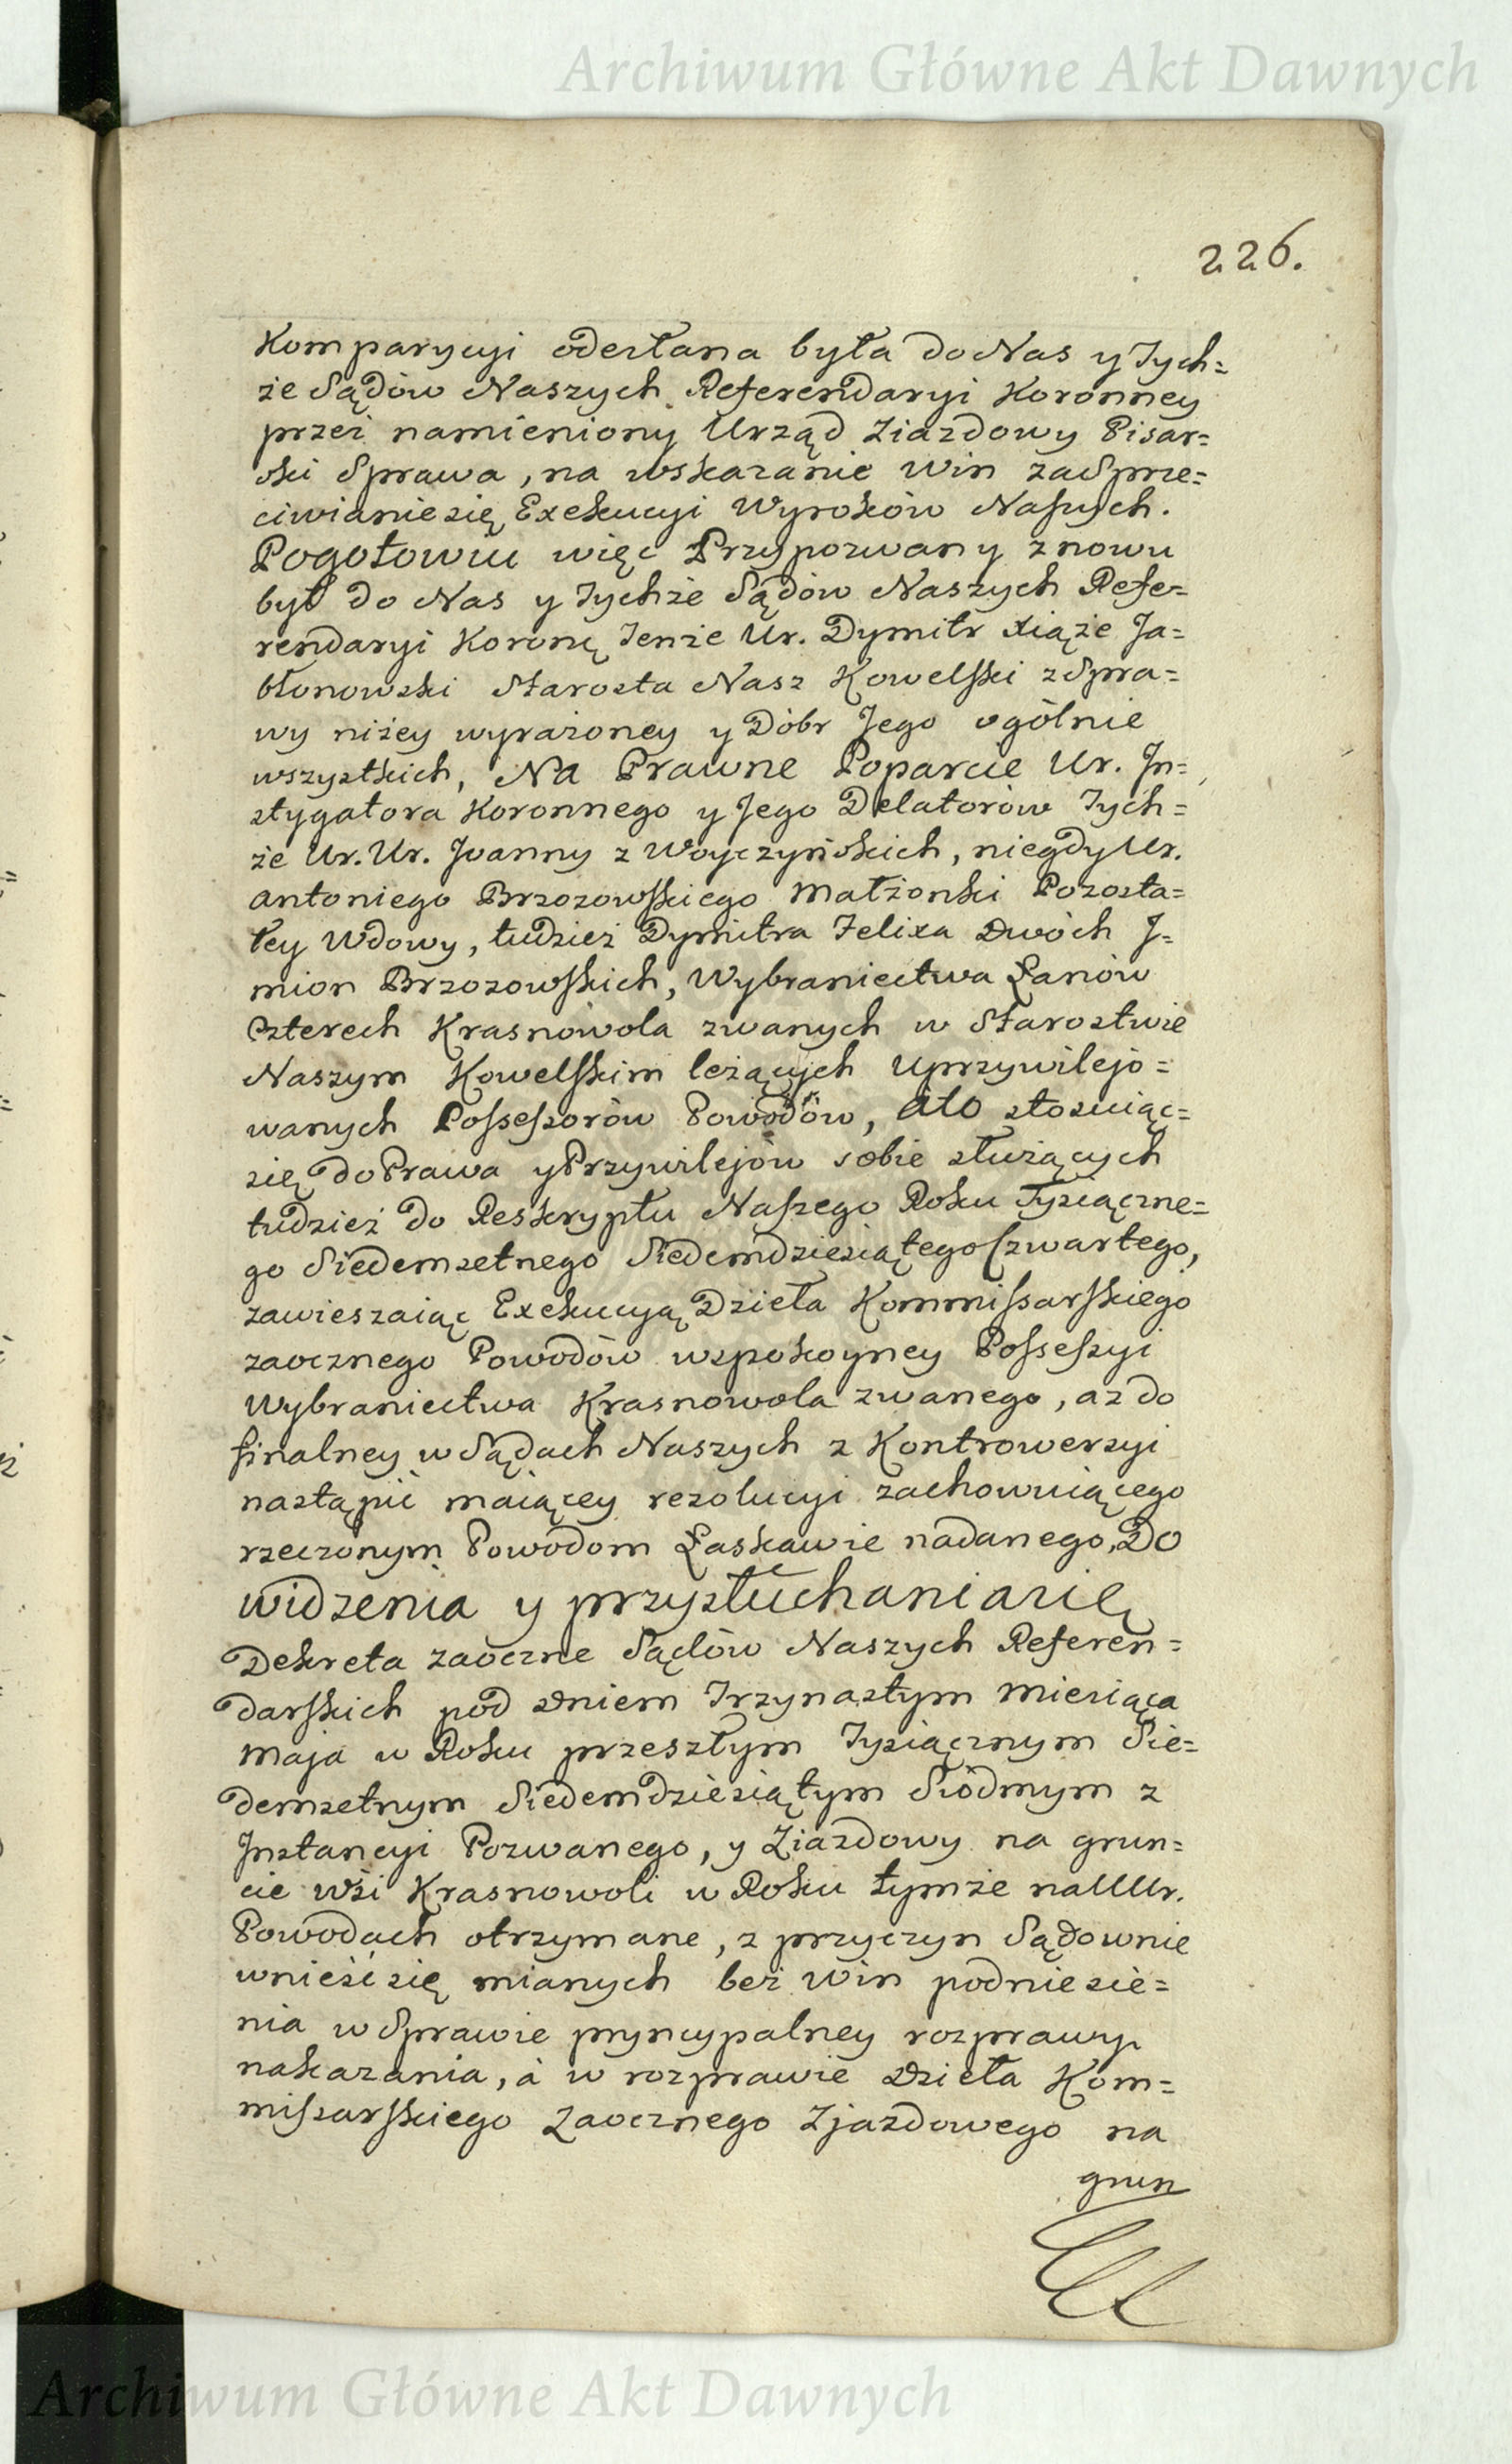 Archiwum Główne Akt Dawnych
226.
Komparycyi odesłana była do Nas y Tych=
że Sądów Naszych Referendaryi Koronney
przez namieniony Urząd Ziazdowy Pisar=
ski Sprawa, na wskazanie Win za Sprze=
ciwianie się Exekucyi Wyroków Naszych.
Pogotowiu więc Przypozwany znowu
był do Nas y Tychże Sądów Naszych Refe=
rendaryi Koronę Tenże Ur. Dymitr Xiąże Ja=
błonowski Starosta Nasz Kowelski z Spra=
wy niżey wyrażoney y Dóbr Jego ogólnie
wszystkich, Na Prawne Poparcie Ur. In=
stygatora Koronnego y Jego Delatorów Tych=
że Ur. Ur. Joanny z Woyczyńskich, niegdy Ur.
Antoniego Brzozowskiego Małżonki Pozosta=
łey Wdowy, tudzież Dymitra Felixa Dwóch I=
mion Brzozowskich, Wybraniectwa Łanów
Czterech Krasnowola zwanych w Starostwie
Naszym Kowelskim leżących Uprzywilejo=
wanych Possessorów Powodów, Ato stosuiąc=
się do Prawa y Przywilejów sobie służących
tudzież do Reskryptu Naszego Roku Tysiączne=
go Siedemsetnego Siedemdziesiątego Czwartego,
zawieszaiąc Exekucyą Dzieła Kommissarskiego
zaocznego Powodów w spokoyney Possessyi
Wybraniectwa Krasnowola zwanego, aż do
finalney w Sądach Naszych z Kontrowersyi
nastąpić maiącey rezolucyi zachowuiącego
rzeczonym Powodom Łaskawie nadanego, Do
widzenia y przysłuchania się
Dekreta zaoczne Sądów Naszych Referen=
darskich pod Dniem Trzynastym Miesiąca
Maja w Roku przeszłym Tysiącznym Sie=
demsetnym Siedemdziesiątym Siódmym z
Instancyi Pozwanego, y Ziazdowy na grun=
cie Wsi Krasnowoli w Roku tymże na UUr.
Powodach otrzymane, z przyczyn Sądownie
wnieść się mianych bez Win podniesie=
nia w Sprawie pryncypalney rozprawy
nakazania, á w rozprawie Dzieła Kom=
missarskiego Zaocznego Zjazdowego na
grun
Archiwum Główne Akt Dawnych